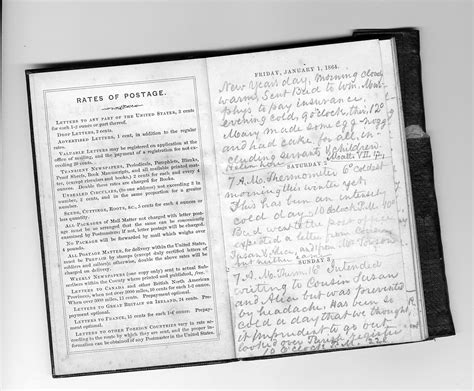 RATES OF POSTAGE.
LETTERS TO ANY PART OF THE UNITED STATES, 3 cents
for each 1-2 ounce or part thereof.
DROP LETTERS, 2 cents.
ADVERTISED LETTERS, 1 cent, in addition to the regular
rates.
VALUABLE LETTERS may be registered on application at the
office of mailing, and the payment of a registration fee not exceeding
20 cents.
TRANSIENT NEWSPAPERS, Periodicals, Pamphlets, Blanks,
Proof Sheets, Book Manuscripts, and all mailable printed matter,
(except circulars and books,) 2 cents for each and every 4
ounces. Double these rates are charged for Books.
UNSEALED CIRCULARS, (to one address,) not exceeding three in
number, 2 cents, and in the same proportion for a greater
number.
SEEDS, CUTTINGS, ROOTS, &C., 2 cents for each 4 ounces or
less quantity.
ALL PACKAGES of Mail Matter not charged with letter postage
must be so arranged that the same can be conveniently
examined by Postmasters; if not, letter postage will be charged.
NO PACKAGE will be forwarded by mail which weighs over
4 pounds.
ALL POSTAGE MATTER, for delivery within the United States,
must be PREPAID BY STAMPS, (except duly certified letters of
soldiers and sailors); otherwise, double the above rates will be
charged on delivery.
WEEKLY NEWSPAPERS (one copy only) sent to actual Subscribers
within the County where printed and published, free.
LETTERS TO CANADA and other British North American
Provinces, when not over 3000 miles, 10 cents for each 1-2 ounce.
When over 3000 miles, 15 cents for each 1-2 ounce. Prepayment
optional.
LETTERS TO GREAT BRITAIN OR IRELAND, 24 cents. Prepayment
optional.
LETTERS TO FRANCE, 15 cents for each 1-4 ounce. Prepayment
optional.
LETTERS TO OTHER FOREIGN COUNTRIES vary in rate according
to the route by which they are sent, and the proper information
can be obtained of any Postmaster in the United States.
FRIDAY, JANUARY 1, 1864.
New Year's day, morning cloudy
warm, sent Bud to
pay insurance,
evening cold, 9 O'clock, Ther. 12°
Mary made some egg nogg
and had cake for all, including
servants & children
SATURDAY 2
7 A.M. Thermometer 6° coldest
morning this winter yet,
This has been an intensely
cold day 10 O'clock P.M.
Bud went to the
expected a letter from Cousin
Susan & Alice, and from Mr.
but neither
SUNDAY 3
7 A.M. Therm 16° Intended
writing to Cousin Susan
and Alice but was prevented
by headache, has been so
cold a day that we thought
it imprudent to go out
looked over
10 O'Clock P.M. 22°